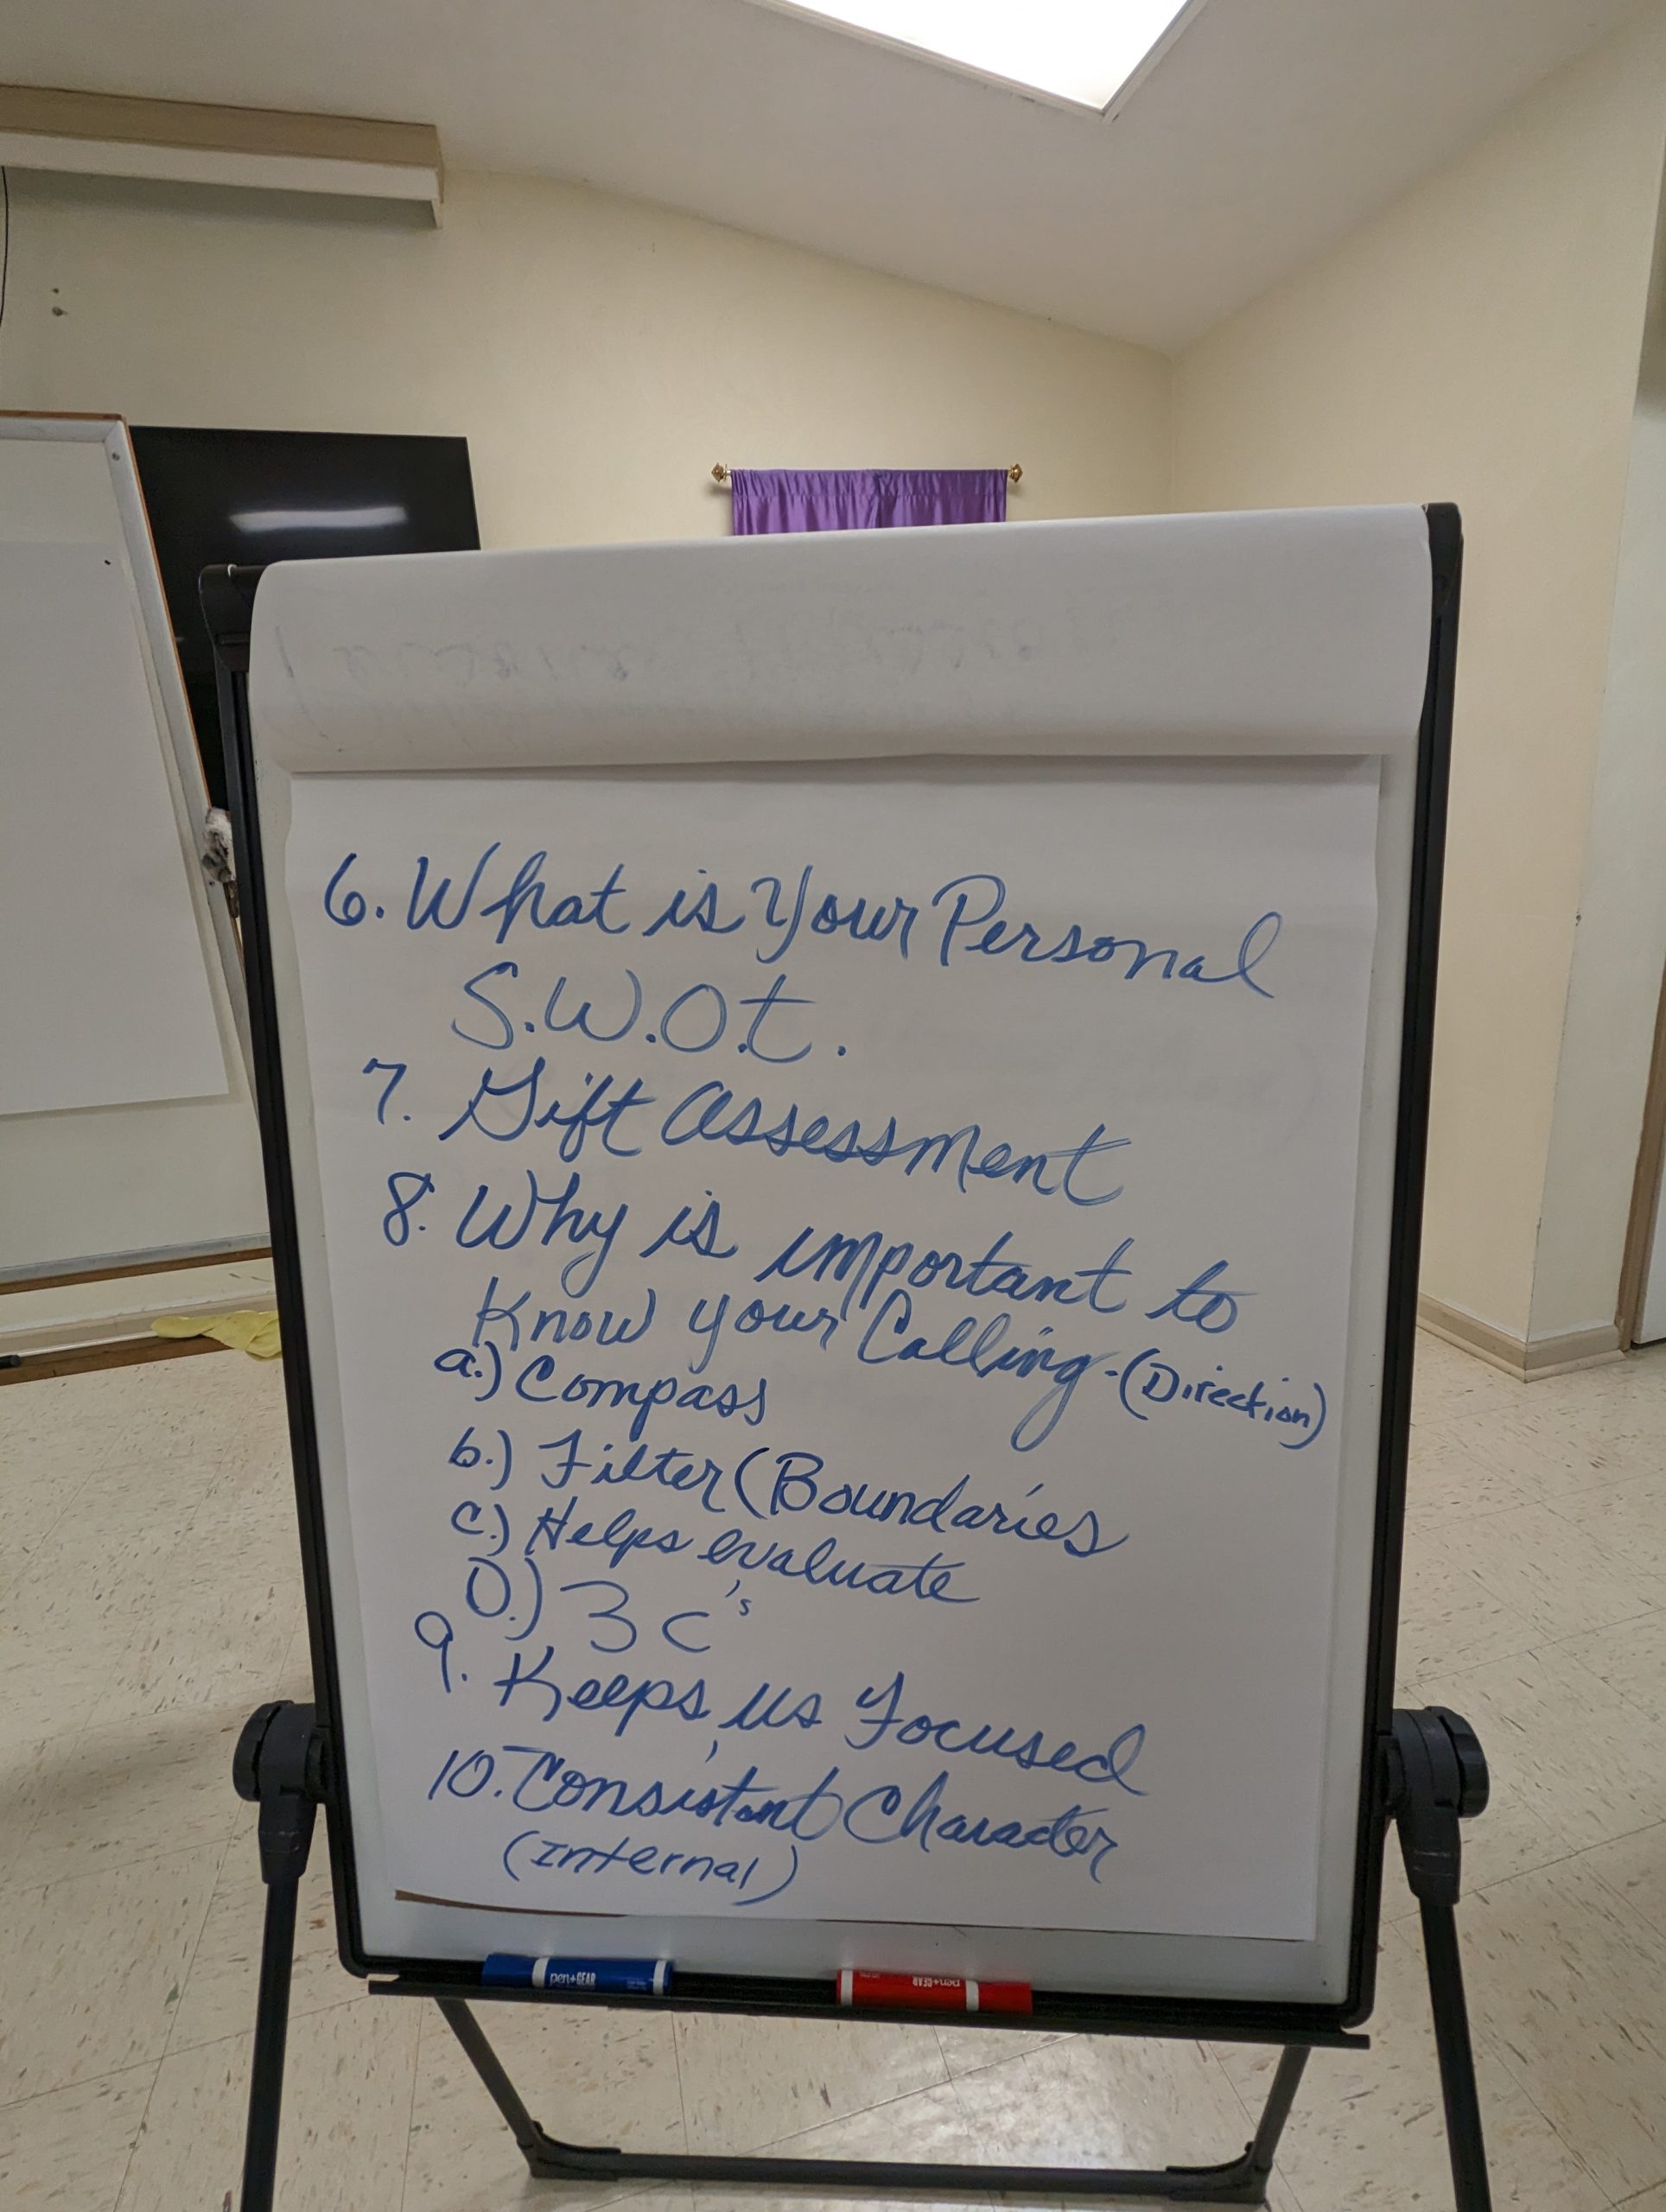 6. What is Your Personal
S.W.O.t.
7. Gift Assessment
8. Why is important to
Know your Calling-(Direction)
a.) Compass
b.) Filter (Boundaries
c.) Helps evaluate
D.) 3 c's
9. Keeps us Focused
10. Consistant Character
(Internal)
pen+GEAR
pen+GEAR